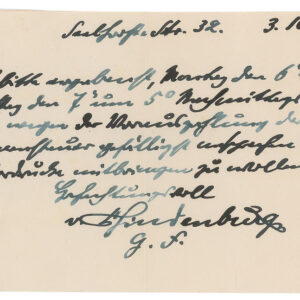 Seelhorststr. 32. 3. 10
bitte ergebenst, Montag den 6
den 7 um 5° Nachmittags
wegen der Vorauszahlung der
gefälligst
mitbringen zu wollen
Hochachtungsvoll
v Hindenburg
G. F.